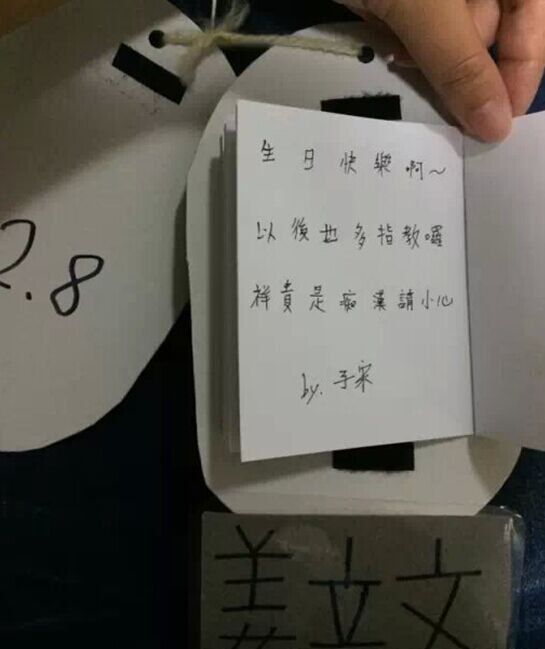 2.8
生日快樂啊~
以後也多指教囉
祥貴是痴漢請小心
by. 子家
姜立文